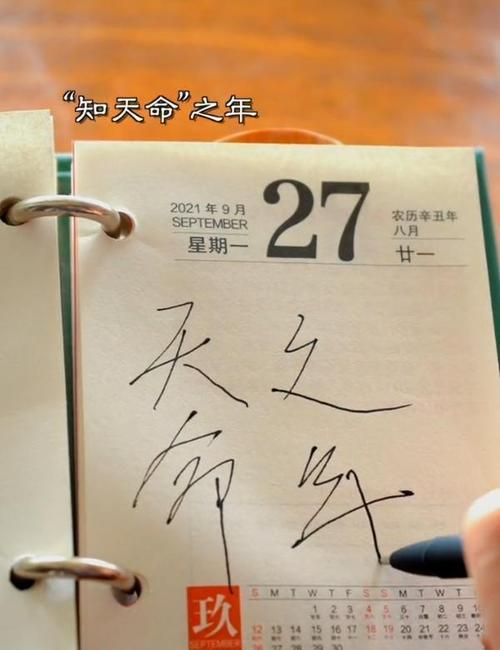 “知天命”之年
2021 年 9 月
SEPTEMBER
星期一
27
农历辛丑年
八月
廿一
天命
之年
玖
SEPTEMBER
S M T W T F S S M T W T F
1 2 3 4 5 6 7 8 9 10
12 13 14 15 16 17 18 19 20 21 22 23 24
26 27 28 29 30